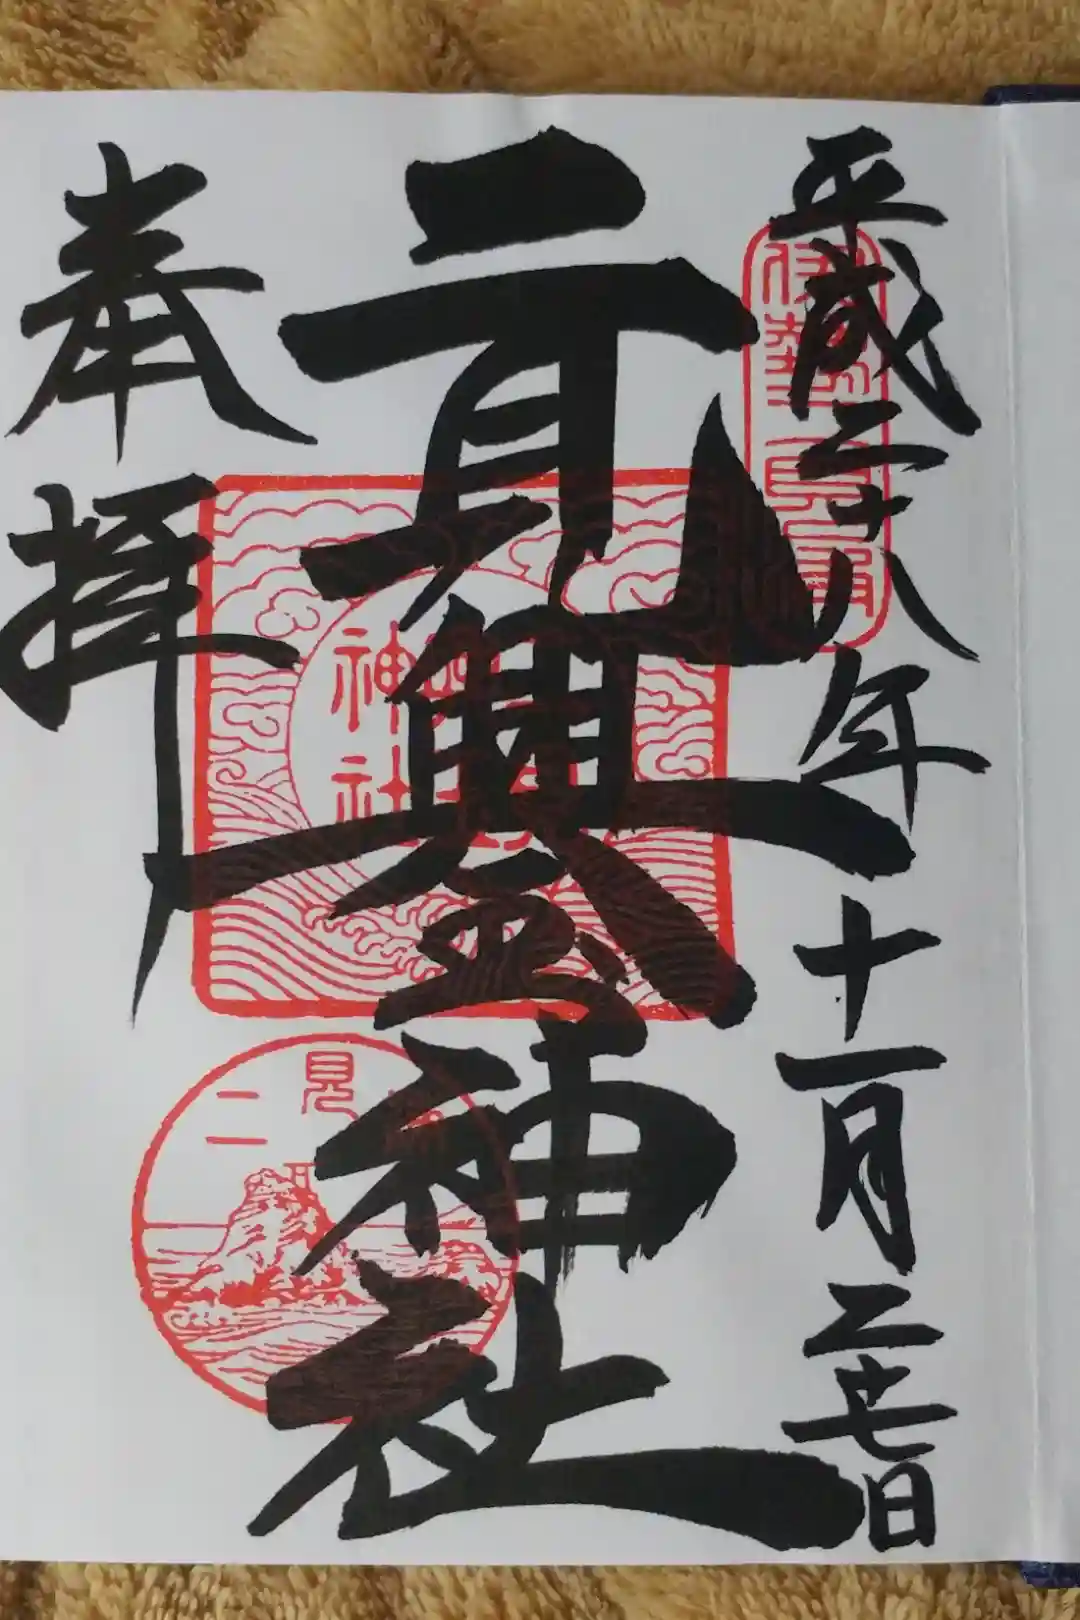 平成二十八年十一月二十七日
伊勢二見浦
二見興玉神社
神社
二見
奉拝